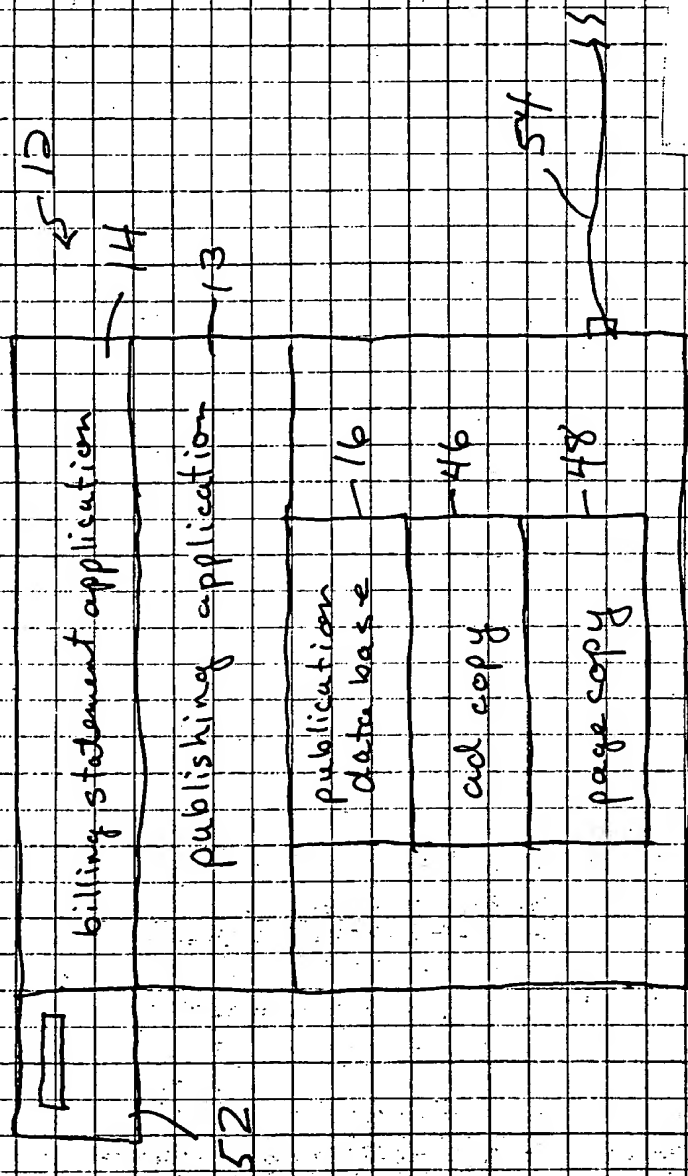 12
billing statement application 14
publishing application 13
publication
data base 16
ad copy 46
page copy 48
52
54